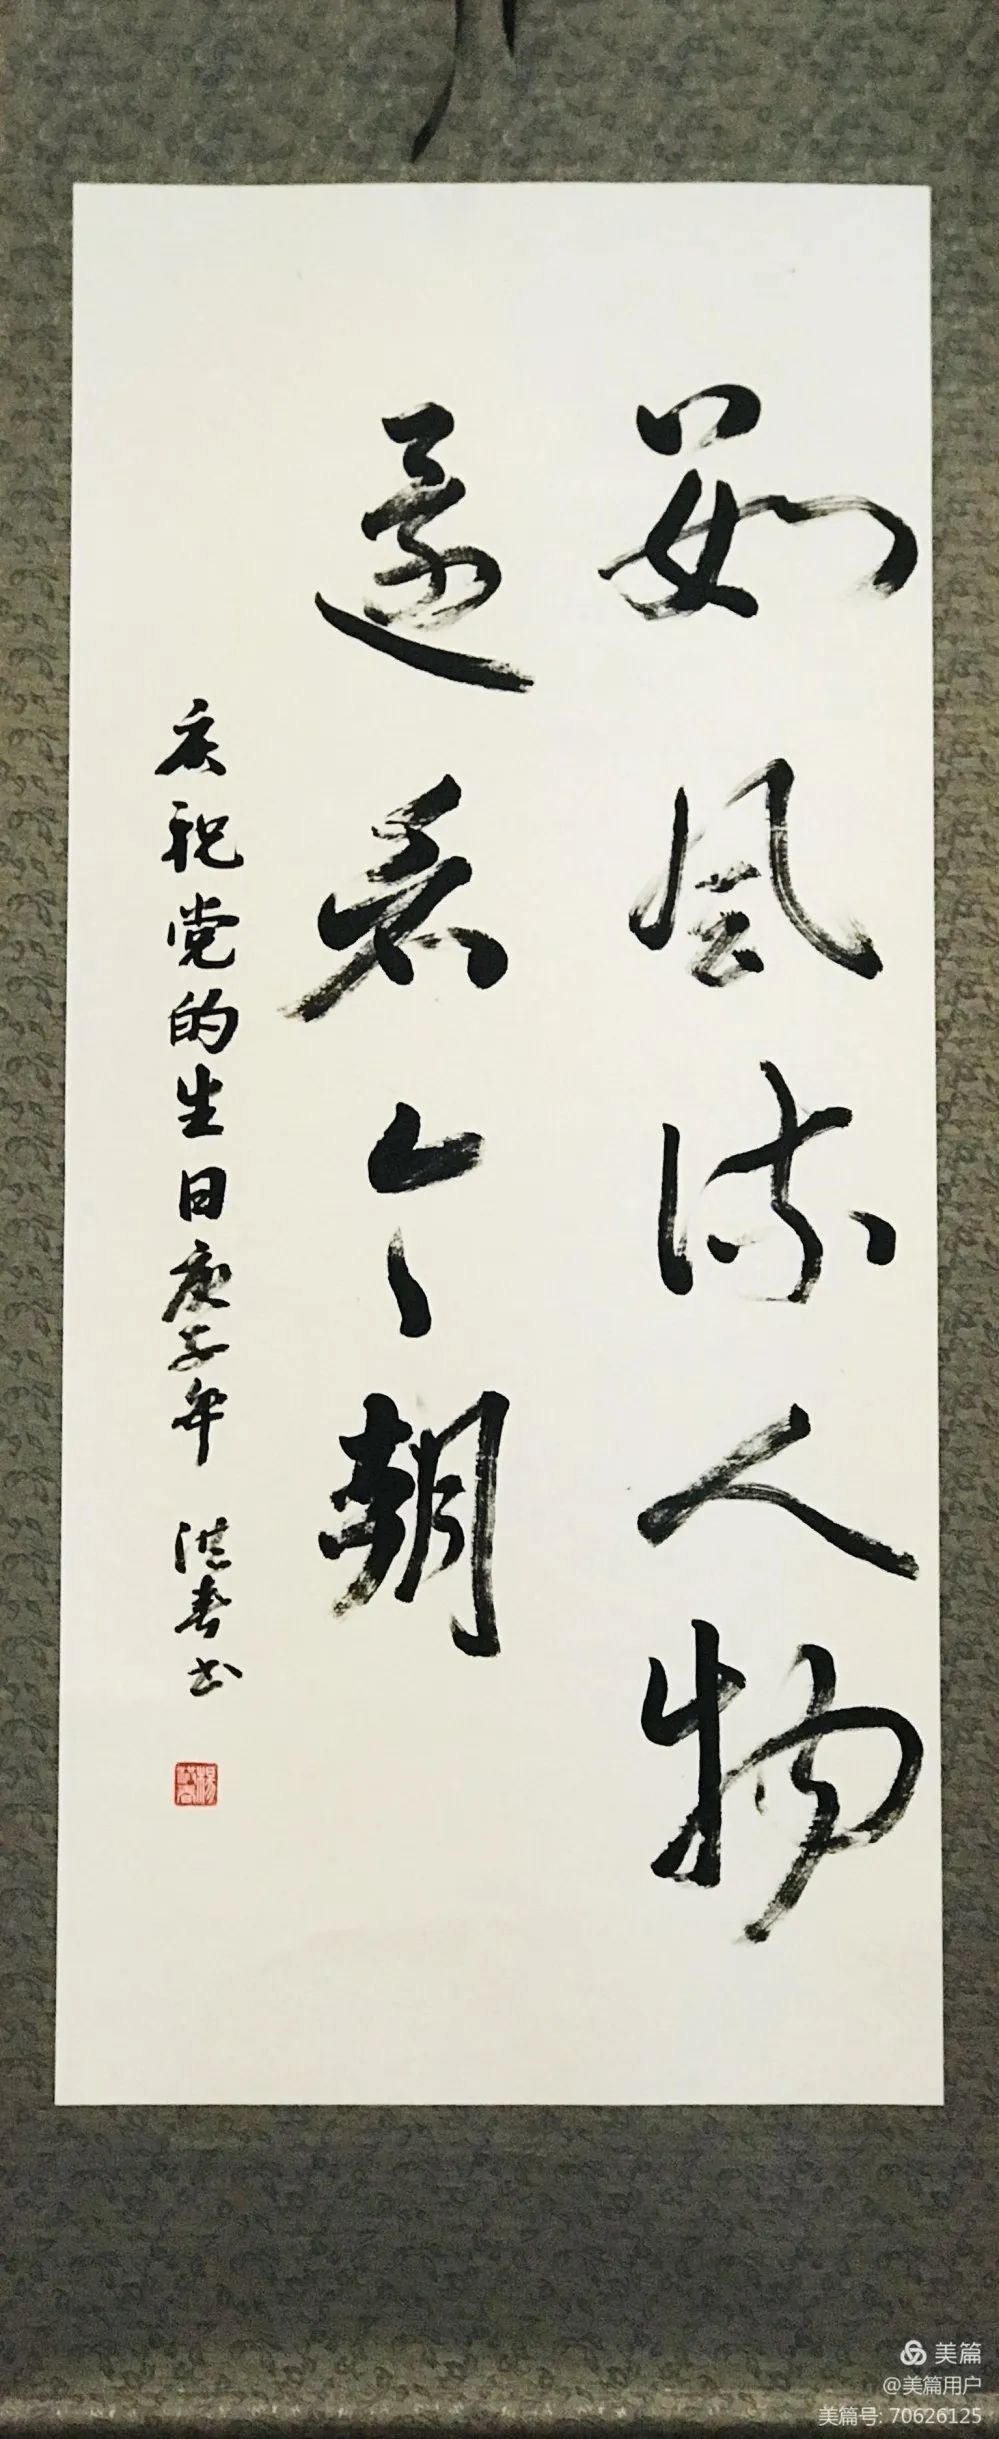 數風流人物
還看今朝
庆祝党的生日庚子年 洪春书
美篇
@美篇用户
美篇号: 70626125